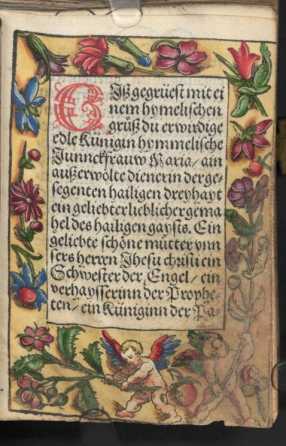 Giß gegrüest mit ei
nem hymelischen
grüß du erwirdige
edle Künigin hymmelische
Junnckfrauw Maria/ ain
außerwölte dienerin der ge-
segenten hailigen dreyhayt
ein geliebter lieblicher gema
hel des hailigen gaysts. Ein
geliebte schöne mütter vnn
sers herren Jhesu christi ein
Schwester der Engel/ ein
verhaysserinn der Prophe-
ten/ ein Küniginn der Pa-